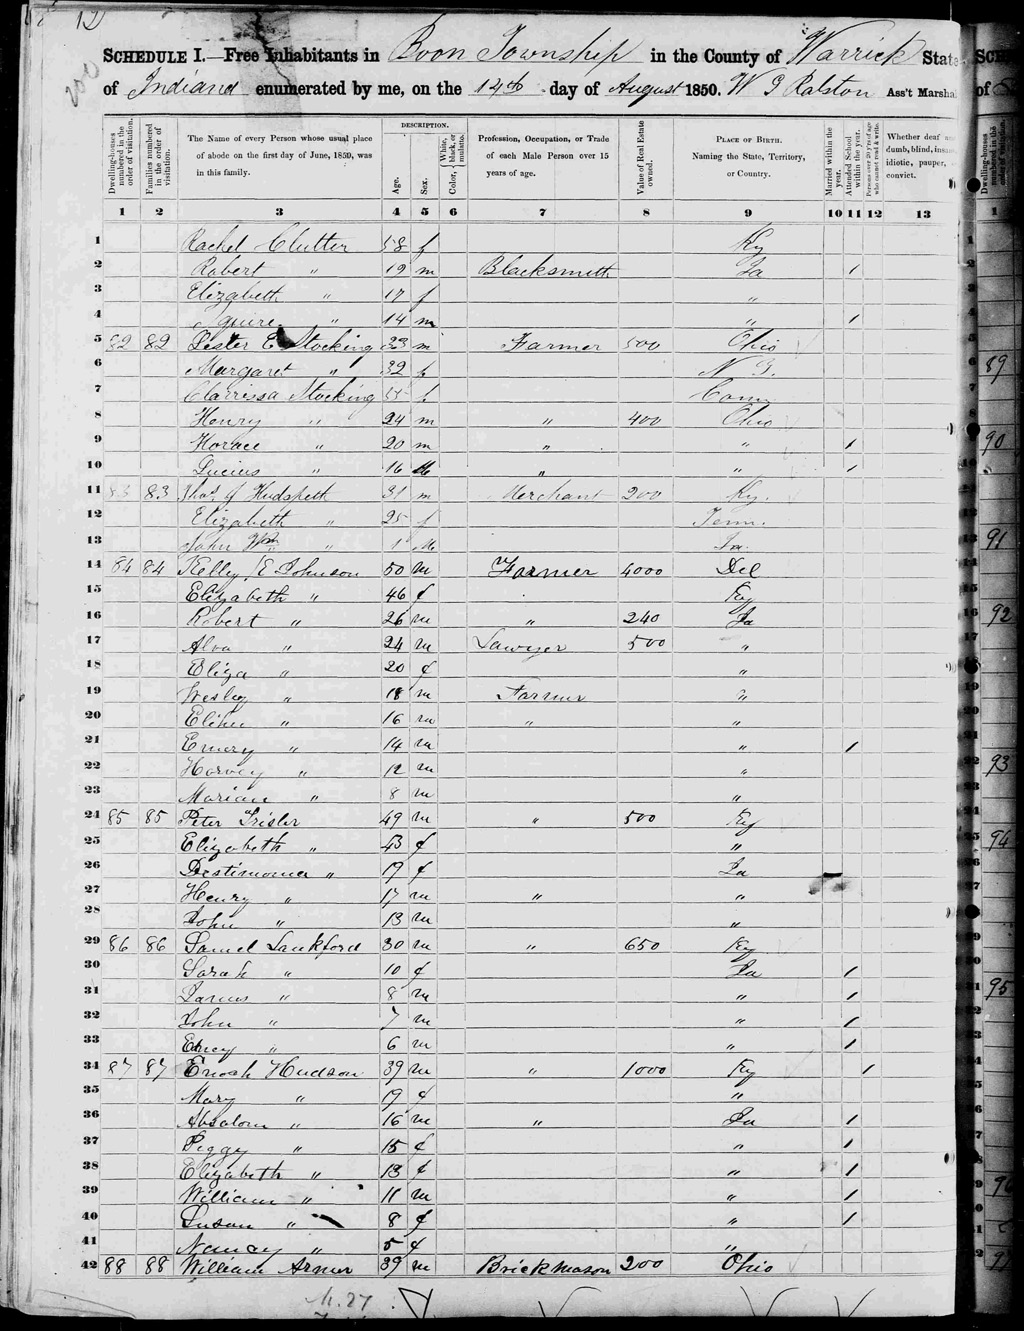 12
SCHEDULE I.—Free Inhabitants in Boon Township in the County of Warrick State
of Indiana enumerated by me, on the 14th day of August 1850. W G Ralston Ass't Marshal
Dwelling-houses numbered in the order of visitation.
Families numbered in the order of visitation.
The Name of every Person whose usual place of abode on the first day of June, 1850, was in this family.
DESCRIPTION.
Age.
Sex.
Color, White, black, or mulatto.
Profession, Occupation, or Trade of each Male Person over 15 years of age.
Value of Real Estate owned.
PLACE OF BIRTH. Naming the State, Territory, or Country.
Married within the year.
Attended School within the year.
Persons over 20 y'rs of age who cannot read & write.
Whether deaf and dumb, blind, insane, idiotic, pauper, convict.
1 2 3 4 5 6 7 8 9 10 11 12 13
1 Rachel Clutter 58 f Ky
2 Robert " 19 m Blacksmith Ia 1
3 Elizabeth " 17 f "
4 Squire " 14 m " 1
5 82 82 Lester E Stocking 33 m Farmer 500 Ohio
6 Margaret " 32 f N J.
7 Clarrissa Stocking 55 f Conn
8 Henry " 24 m " 400 Ohio
9 Horace " 20 m " " 1
10 Lucius " 16 M " " 1
11 83 83 Thos J Hudspeth 31 m Merchant 200 Ky.
12 Elizabeth " 25 f Tenn.
13 John Wm " 1 M Ia.
14 84 84 Kelly E Johnson 50 m Farmer 4000 Del
15 Elizabeth " 46 f Ky
16 Robert " 26 m " 240 Ia
17 Alva " 24 m Lawyer 500 "
18 Eliza " 20 f "
19 Wesley " 18 m Farmer "
20 Elihu " 16 m " "
21 Emery " 14 m " 1
22 Harvey " 12 m "
23 Marian " 8 m "
24 85 85 Peter Trisler 49 m " 500 Ky
25 Elizabeth " 43 f "
26 Destimonia " 19 f Ia
27 Henry " 17 m " "
28 John " 13 m "
29 86 86 Samel Lankford 30 m " 650 Ky
30 Sarah " 10 f Ia 1
31 James " 8 m " 1
32 John " 7 m " 1
33 " 6 m " 1
34 87 87 Enoch Hudson 39 m " 1000 Ky 1
35 Mary " 19 f "
36 Absalom " 16 m " Ia 1
37 Peggy " 15 f " 1
38 Elizabeth " 13 f " 1
39 William " 11 m " 1
40 Susan " 8 f " 1
41 Nancy " 5 f "
42 88 88 William Armer 39 m Brickmason 200 Ohio
M. 27
SCH
of
1
89
90
91
92
93
94
95
96
97